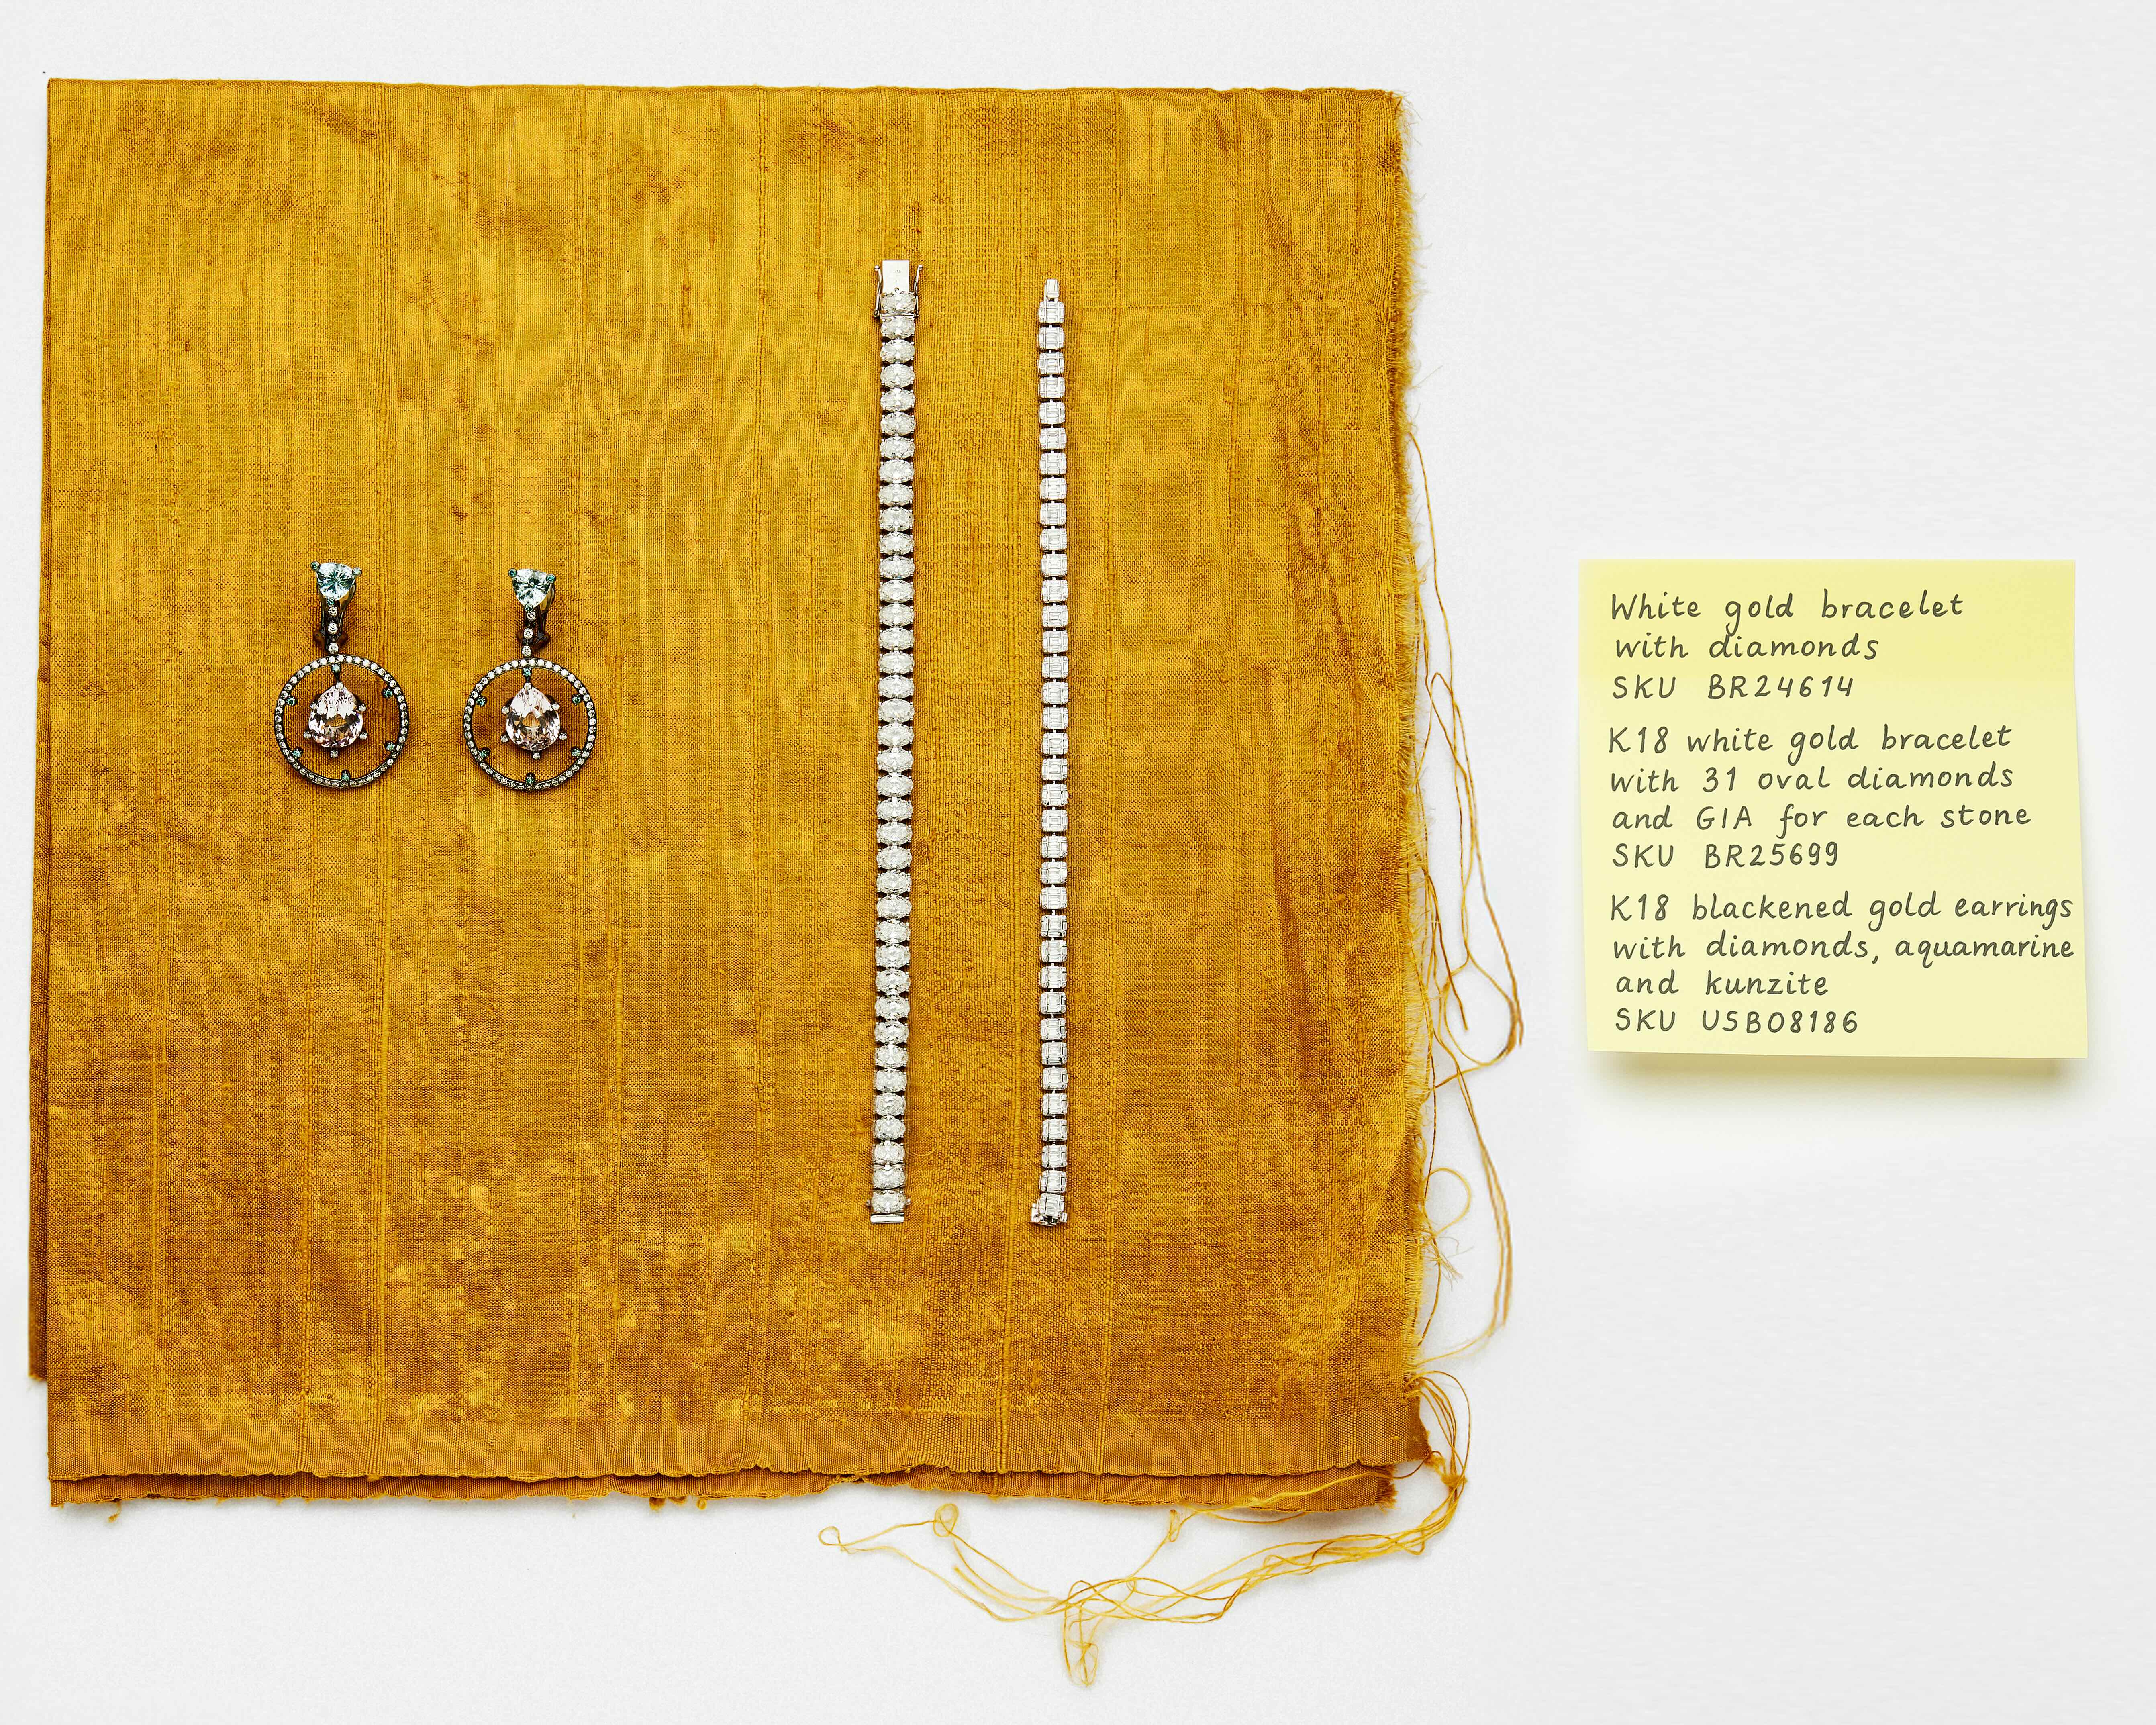 White gold bracelet
with diamonds
SKU BR24614
K18 white gold bracelet
with 31 oval diamonds
and GIA for each stone
SKU BR25699
K18 blackened gold earrings
with diamonds, aquamarine
and kunzite
SKU USB08186